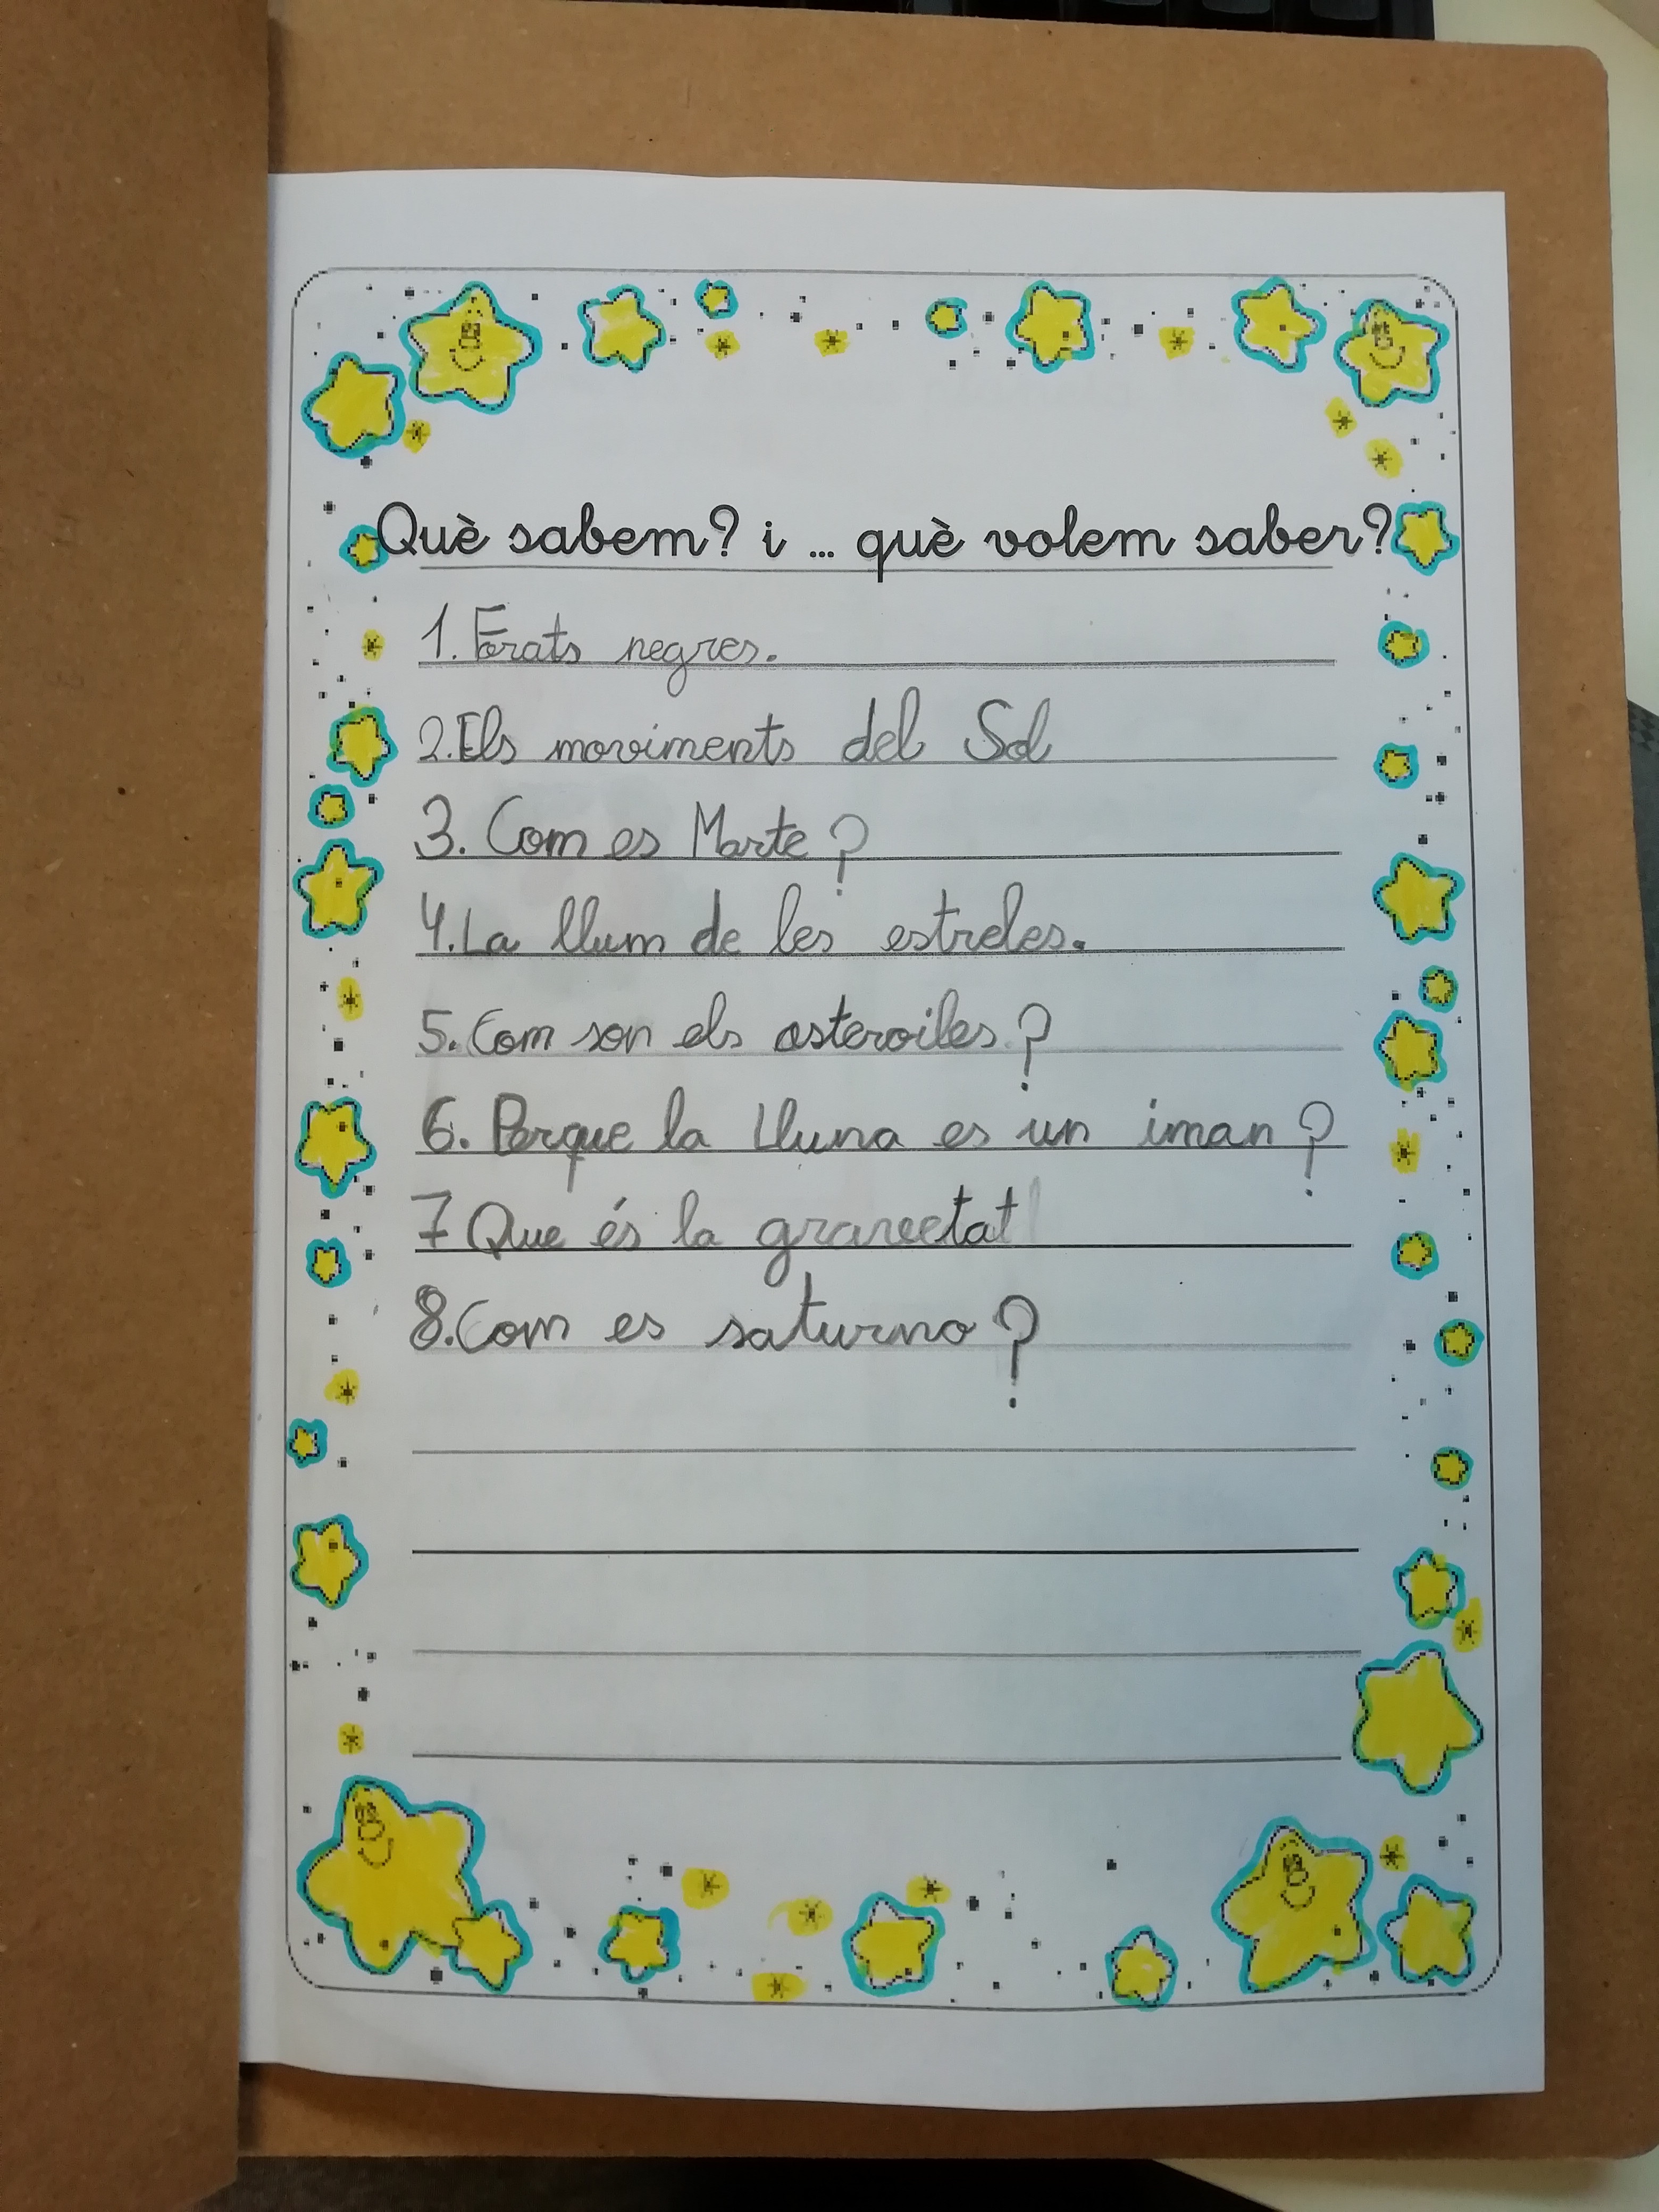 Què sabem? i ... què volem saber?
1. Forats negres.
2. Els moviments del Sol
3. Com es Marte?
4. La llum de les estreles.
5. Com son els asteroiles?
6. Perque la Lluna es un iman?
7 Que és la gravetat
8. Com es saturno?